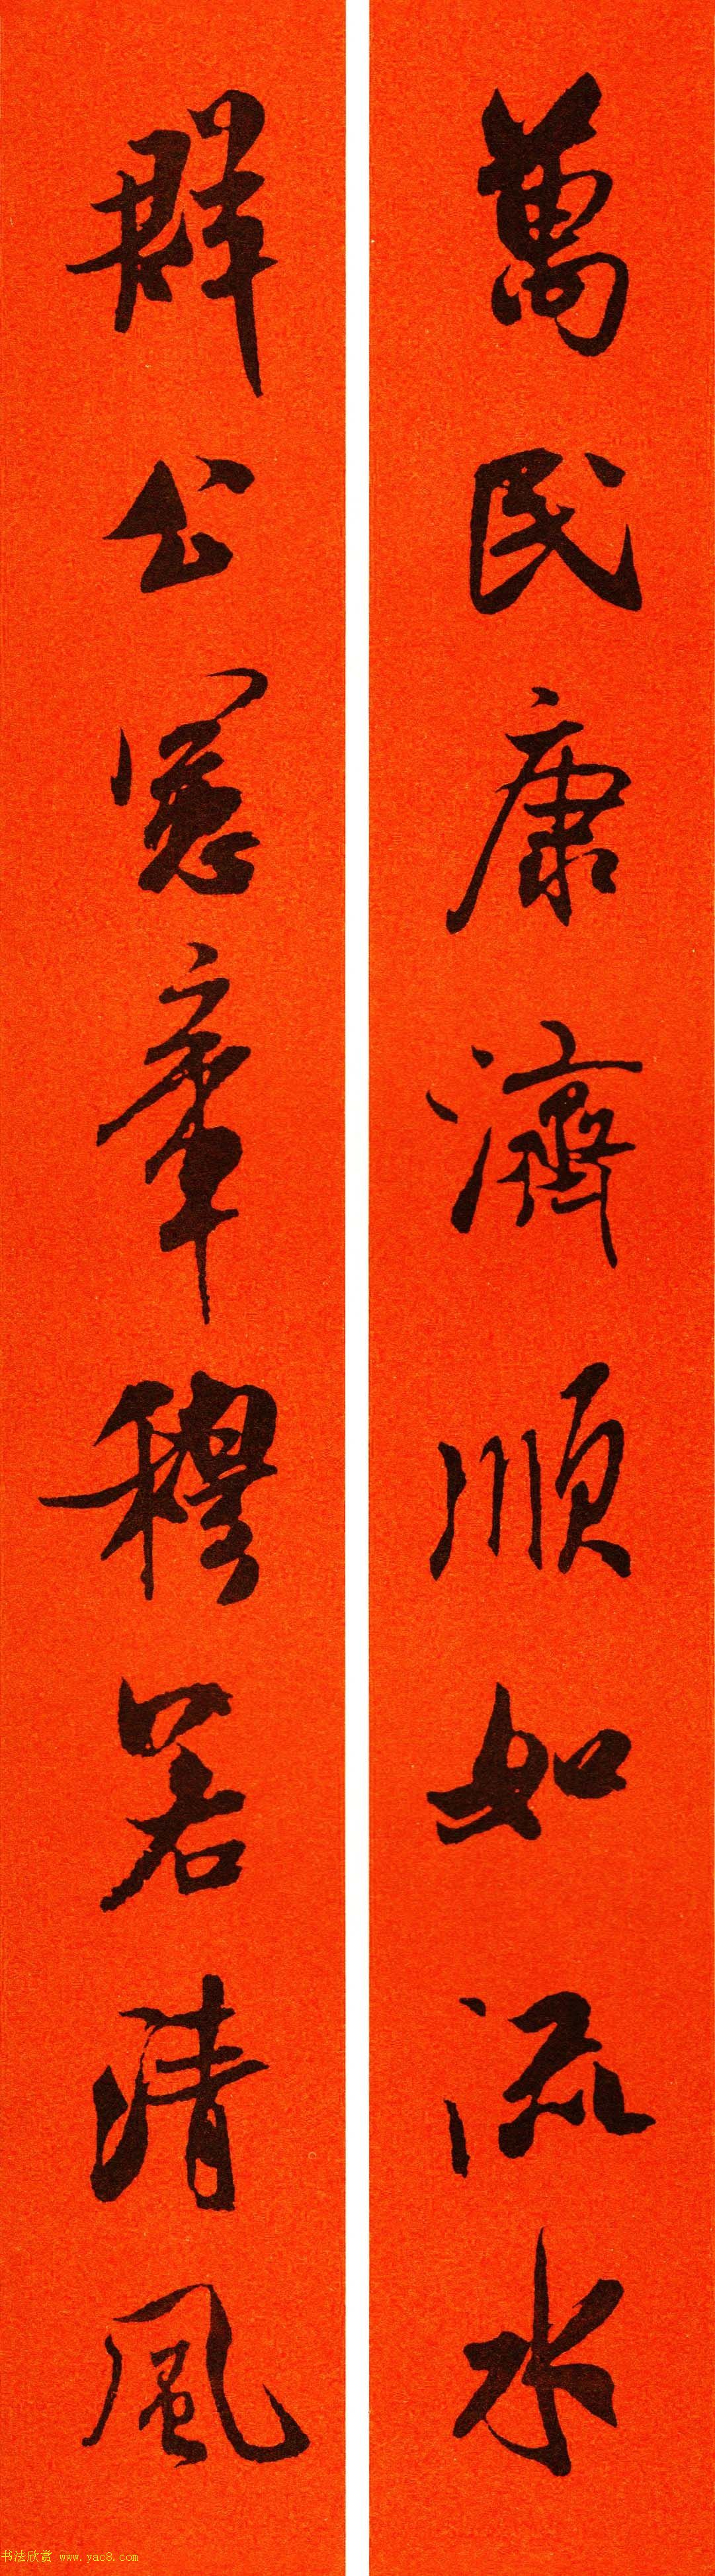 萬民康濟順如流水
群公憲章穆若清風
书法欣赏 www.yac8.com